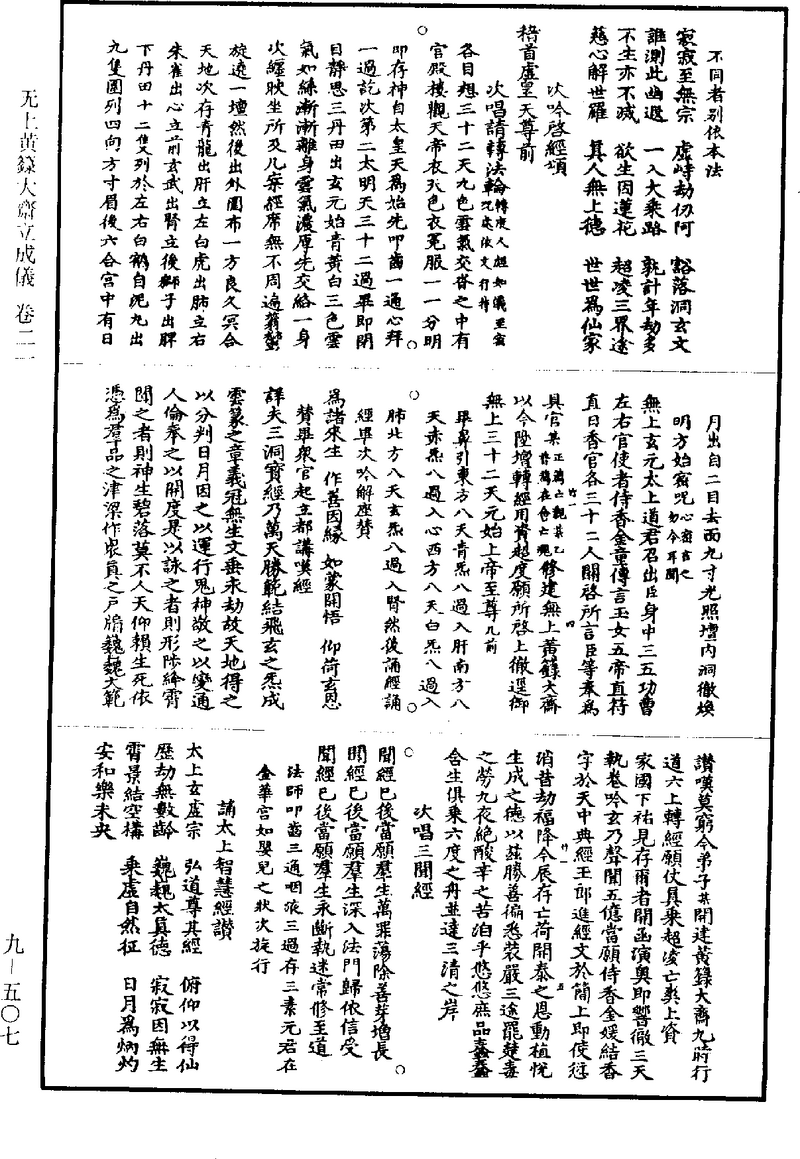 不同者別依本法
寂寂至無宗　虛峙劫仞阿　豁落洞玄文
誰測此幽遐　一入大乘路　孰計年劫多
不生亦不滅　欲生因蓮花　超凌三界途
慈心解世羅　真人無上德　世世為仙家
次吟啓經頌
稽首虛皇天尊前
次唱請轉法輪轉度人經如儀至密呪處依文行持
各目想三十二天九色雲氣交沓之中有
官殿樓觀天帝衣天色衣冕服一一分明
即存神自太皇天為始先叩齒一通心拜
一過訖次第二太明天三十二過畢即閉
目靜思三丹田出玄元始青黃白三色雲
氣如絲漸漸離身靈氣濃厚先交絡一身
次纏映坐所及几案經席無不周遍蓊欝
旋遶一壇然後出外圍布一方良久冥合
天地次存青龍出肝立左白虎出肺立右
朱雀出心立前玄武出腎立後獅子出脾
下丹田十二隻列於左右白鶴自泥丸出
九隻圍列四向方寸眉後六合宮中有日
月出自二目去面九寸光照壇內洞徹煥
明方始密呪心密言之勿令耳聞
無上玄元太上道君召出臣身中三五功曹
左右官使者侍香金童傳言玉女五帝直符
直日香官各三十二人關啓所言臣等奉為
具官某正薦亡觀某乙普薦在會亡魂修建無上黃籙大齋
以今陞壇轉經用資超度願所啓上徹逕御
無上三十二天元始上帝至尊几前
畢鼻引東方八天青炁八過入肝南方八
天赤炁八過入心西方八天白炁八過入
肺北方八天玄炁八過入腎然後誦經誦
經畢次吟解座贊
為諸來生　作善因緣　如蒙開悟　仰荷玄恩
贊畢眾官起立都講嘆經
詳夫三洞寶經乃萬天勝範結飛玄之炁成
雲篆之章義冠無生文垂永劫故天地得之
以分判日月因之以運行鬼神敬之以變通
人倫奉之以開度是以詠之者則形陟絳霄
聞之者則神生碧落莫不人天仰賴生死依
憑為羣品之津梁作眾真之戶牖巍巍大範
讚嘆莫窮今弟子某開建黃籙大齋九時行
道六上轉經願仗真乘超凌亡爽上資
家國下祐見存爾者開函演奧即響徹三天
執卷吟玄乃聲聞五億當願侍香金媛結香
字於天中典經玉郎進經文於簡上即使愆
消昔劫福降今辰存亡荷開泰之恩動植悅
生成之德以茲勝善徧悉裝嚴三途罷楚毒
之勞九夜絕酸辛之苦洎乎悠悠庶品蠢蠢
含生俱乘六度之舟並達三清之岸
次唱三聞經
聞經已後當願羣生萬罪蕩除善芽增長
聞經已後當願羣生深入法門歸依信受
聞經已後當願羣生永斷執迷常修至道
法師叩齒三通咽液三過存三素元君在
金華宮如嬰兒之狀次旋行
誦太上智慧經讚
太上玄虛宗　弘道尊其經　俯仰以得仙
歷劫無數齡　巍巍太真德　寂寂因無生
霄景結空構　乘虛自然征　日月為炳灼
安和樂未央
无上黃籙大齋立成儀　卷二一
九—五〇七